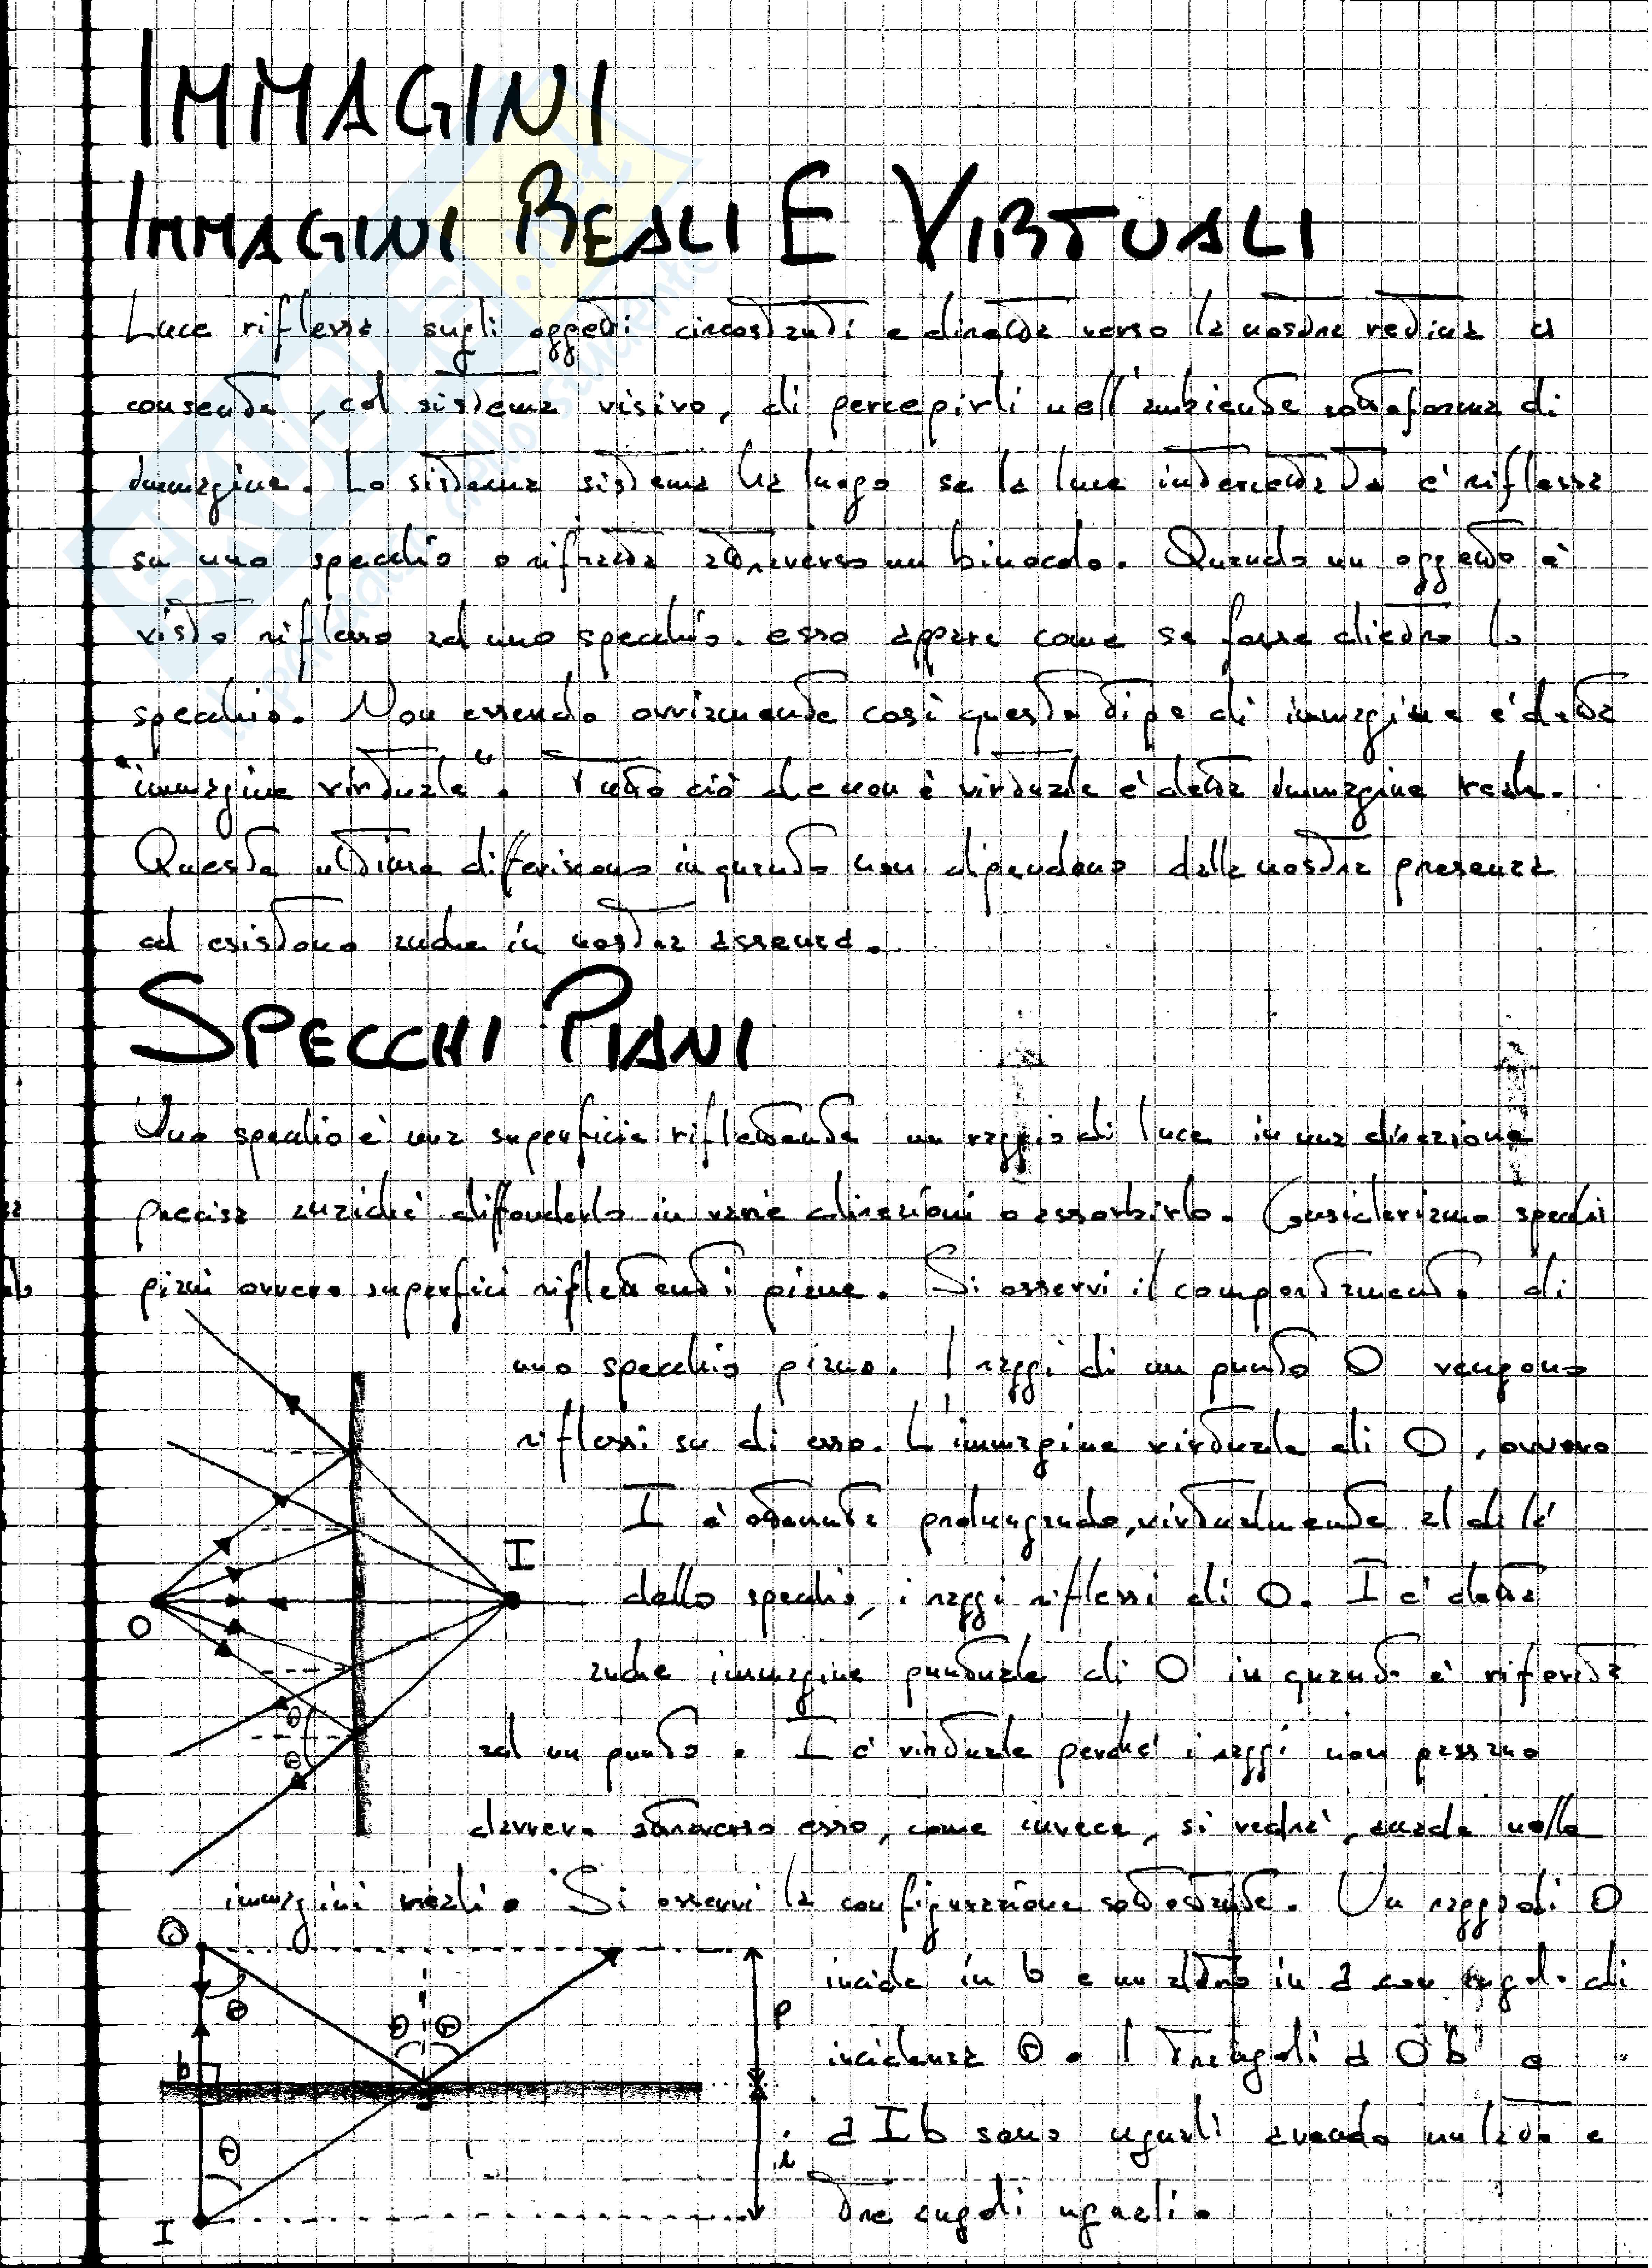 IMMAGINI
IMMAGINI REALI E VIRTUALI
Luce riflessa sugli oggetti circostanti e diretta verso la nostra retina ci
consente, col sistema visivo, di percepirli nell'ambiente sottoforma di
immagine. Lo sistema ha luogo se la luce intercettata è riflessa
su uno specchio o rifratta attraverso un binocolo. Quando un oggetto è
visto riflesso ad uno specchio. esso appare come se fosse dietro lo
specchio. Non essendo ovviamente così questo tipo di immagine è detta
"immagine virtuale". Tutto ciò che non è virtuale è detta immagine reale.
Queste ultime differiscono in quanto non dipendono dalla nostra presenza
ed esistono anche in nostra assenza.
SPECCHI PIANI
Uno specchio è una superficie riflettente un raggio di luce in una direzione
precisa anziché diffonderlo in varie direzioni o assorbirlo. Consideriamo specchi
piani ovvero superfici riflettenti piane. Si osservi il comportamento di
uno specchio piano. I raggi di un punto O vengono
riflessi su di esso. L'immagine virtuale di O, ovvero
I è ottenuta prolungando, virtualmente al di là
dello specchio, i raggi riflessi di O. I è detta
anche immagine puntuale di O in quanto è riferita
ad un punto. I è virtuale perché i raggi non passano
davvero attraverso esso, come invece, si vedrà, accade nelle
immagini reali. Si osservi la configurazione sottostante. Un raggio di O
incide in b e un altro in a con angolo di
incidenza θ. I triangoli a O b e
a I b sono uguali avendo un lato e
tre angoli uguali.
O
I
θ
θ
O
θ
θ θ
b
a
θ
I
p
i